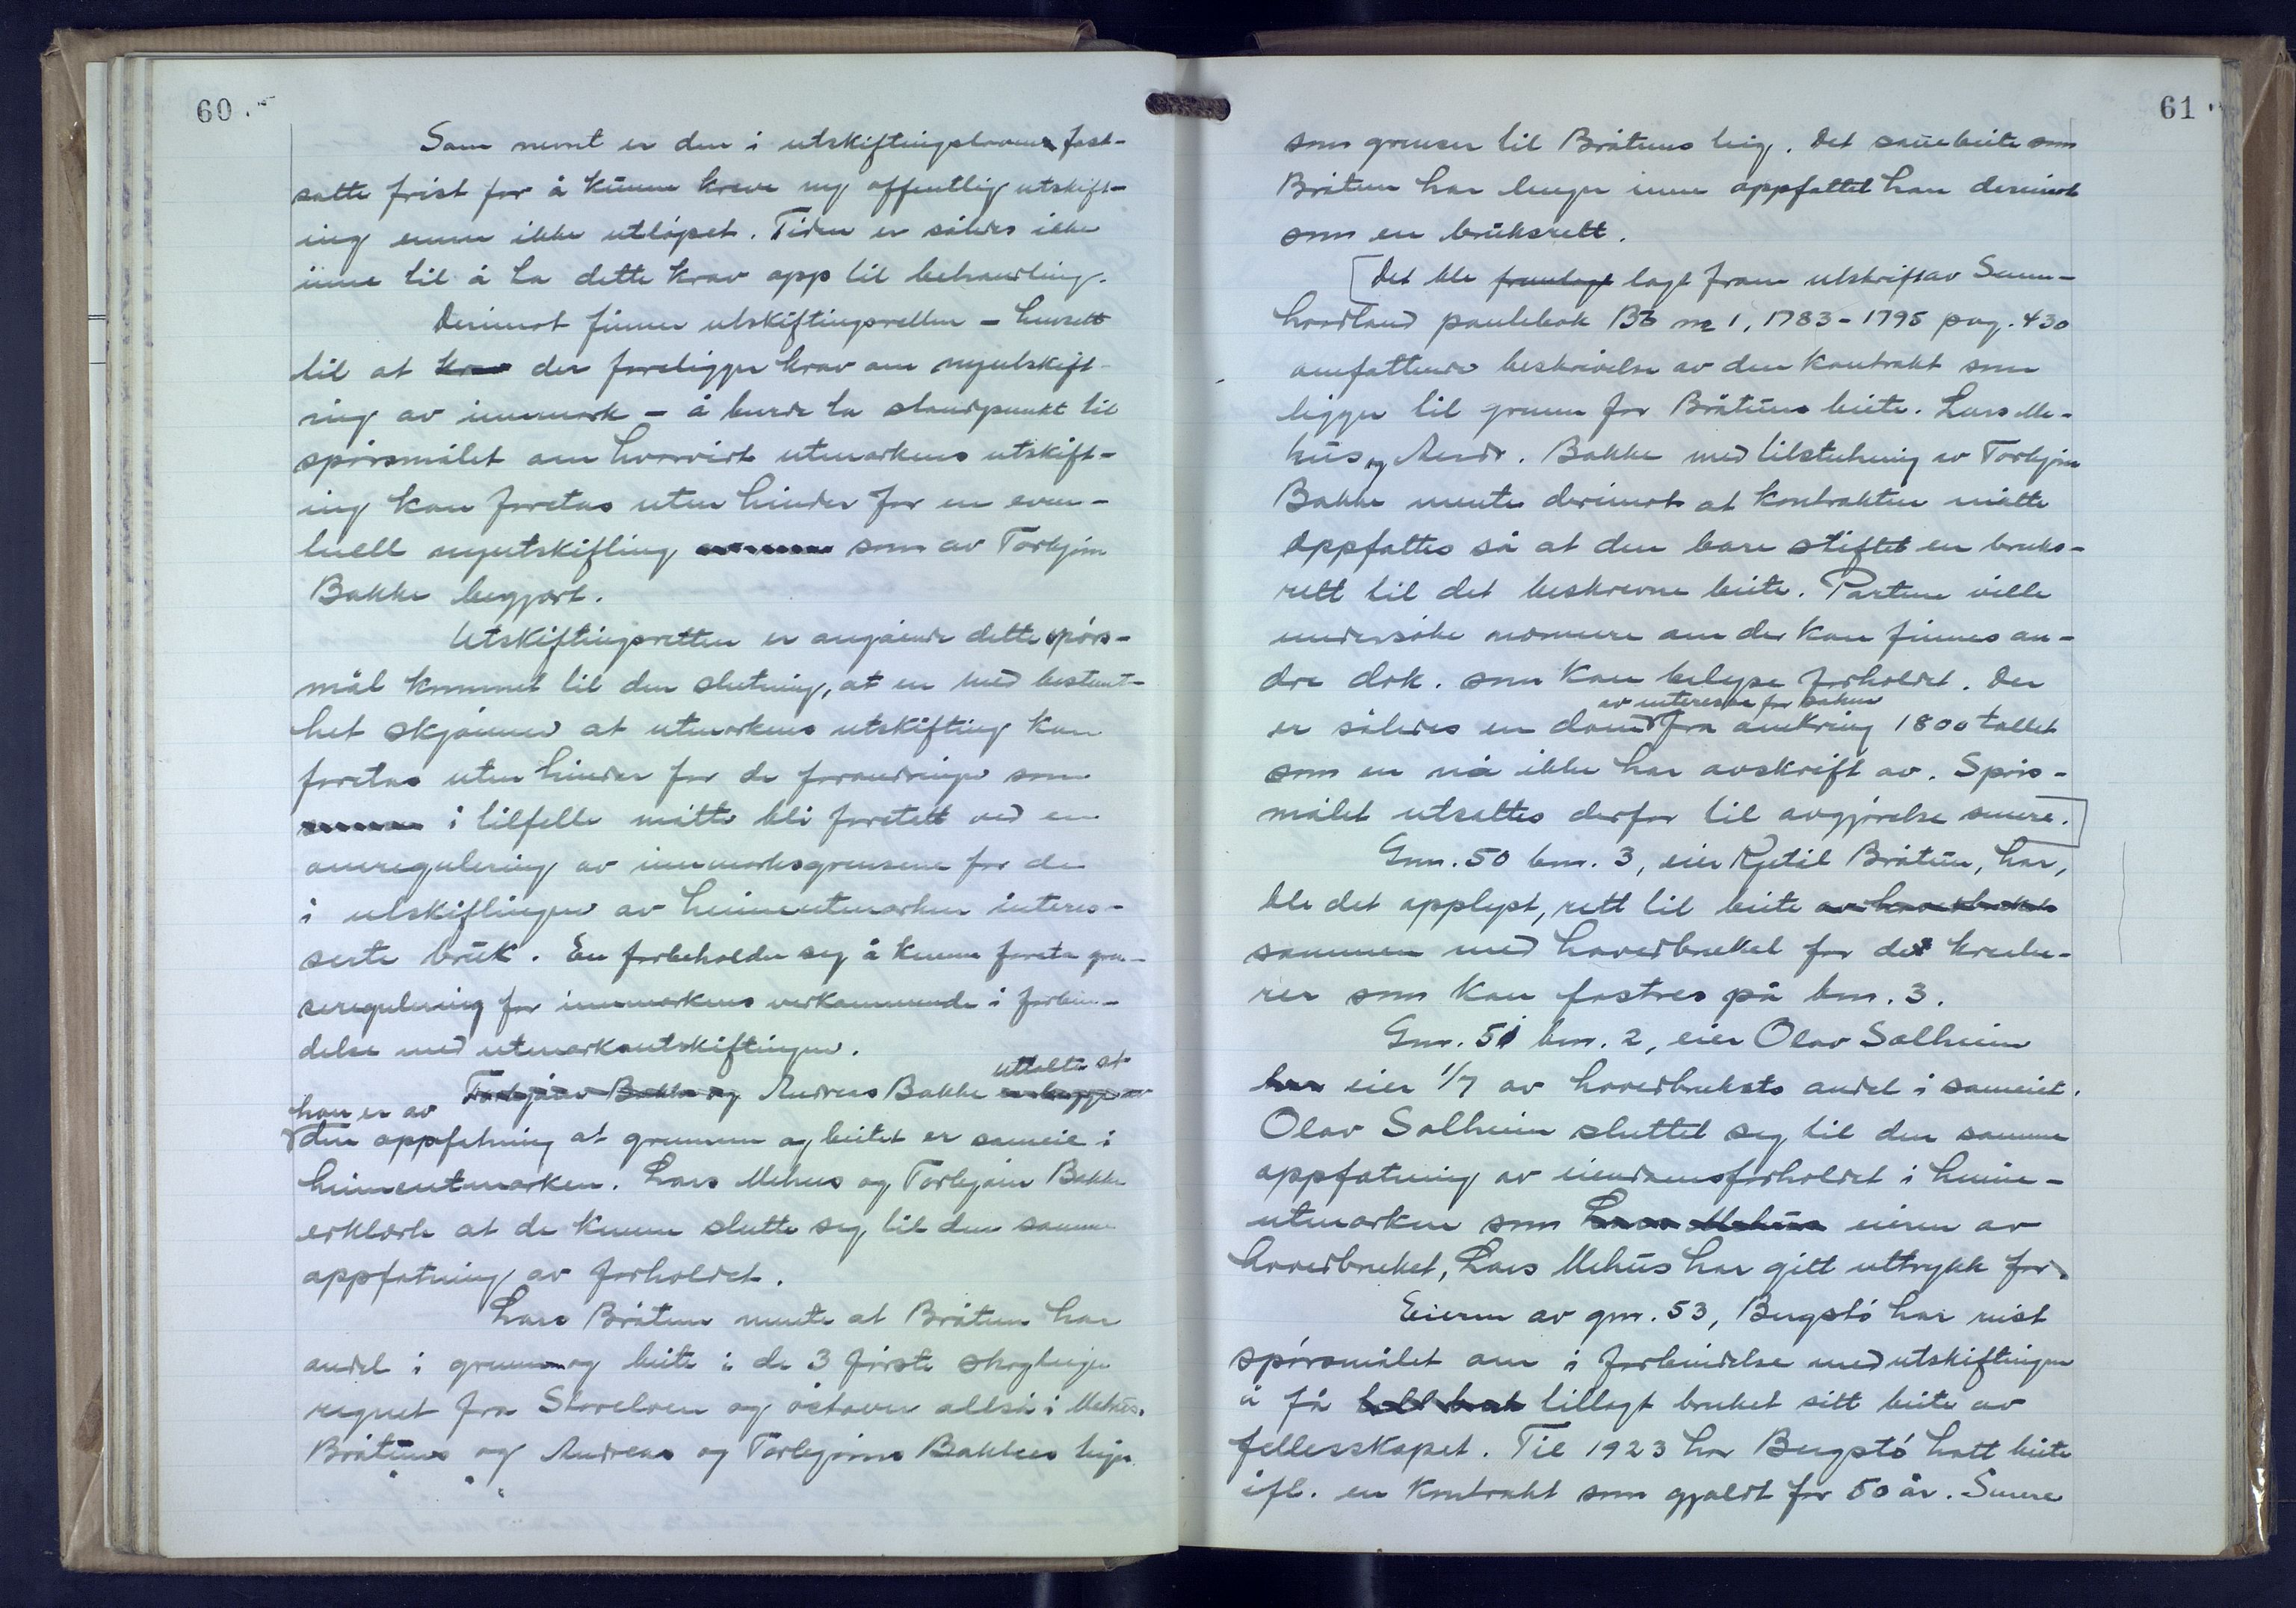 60.
Som nevnt er den i utskiftingsloven fast-
satte frist for å kunne kreve ny offentlig utskift-
ing ennu ikke utløpet. Tiden er således ikke
inne til å ta dette krav opp til behandling.
Derimot finner utskiftingsretten – hensett
til at krav der foreligger krav om nyutskift-
ing av innmark – å burde ta standpunkt til
spørsmålet om hvorvidt utmarkens utskift-
ing kan foretas uten hinder for en even-
tuell nyutskifting som av Torbjørn
Bakke begjært.
Utskiftingsretten er angående dette spørs-
mål kommet til den slutning, at en med bestemt-
het skjønner at utmarkens utskifting kan
foretas uten hinder for de forandringer som
i tilfelle måtte bli foretatt ved en
omregulering av innmarksgrensene for de
i utskiftingen av heimeutmarken interes-
serte bruk. En forbeholder seg å kunne foreta gren-
seregulering for innmarkens vedkommende i forbin-
delse med utmarksutskiftingen.
uttalte at
Torbjørn Bakke og Andreas Bakke er begge av
han er av
den oppfatning at grunnen og beitet er sameie i
heimeutmarken. Lars Mehus og Torbjørn Bakke
erklærte at de kunne slutte seg til den samme
oppfatning av forholdet.
Lars Bråtun mente at Bråtun har
andel i grunn og beite i de 3 første skogteiger
regnet fra Storelven og østover altså i Mehus,
Bråtuns og Andreas og Torbjørns Bakkes teiger
61
som grenser til Bråtuns teig. Det sauebeite som
Bråtun har lenger inne oppfattet han derimot
som en bruksrett.
Det ble framlagt lagt fram utskrift av Sunn-
hordland pantebok Bb nr 1, 1783-1795 pag. 430
omfattende beskrivelse av den kontrakt som
ligger til grunn for Bråtuns beite. Lars Me-
hus og Andr. Bakke med tilslutning av Torbjørn
Bakke mente derimot at kontrakten måtte
oppfattes så at den bare stiftet en bruks-
rett til det beskrevne beite. Partene ville
undersøke nærmere om der kan finnes an-
dre dok. som kan belyse forholdet. Der
av interesse for saken
er således en dom fra omkring 1800 tallet
som en nå ikke har avskrift av. Spørs-
målet utsattes derfor til avgjørelse senere.
Gnr. 50 bnr. 3, eier Kjetil Bråtun, har,
ble det opplyst, rett til beite av hovedbruket
sammen med hovedbruket for de kreatu-
rer som kan fostres på bnr. 3.
Gnr. 51 bnr. 2, eier Olav Solheim
har eier 1/7 av hovedbrukets andel i sameiet.
Olav Solheim sluttet seg til den samme
oppfatning av eiendomsforholdet i heime-
utmarken som Lars Mehus eieren av
hovedbruket, Lars Mehus har gitt uttrykk for.
Eieren av gnr. 53, Bergstø har reist
spørsmålet om i forbindelse med utskiftingen
å få tillagt bruket sitt beite av
fellesskapet. Til 1923 har Bergstø hatt beite
ifl. en kontrakt som gjaldt for 50 år. Senere